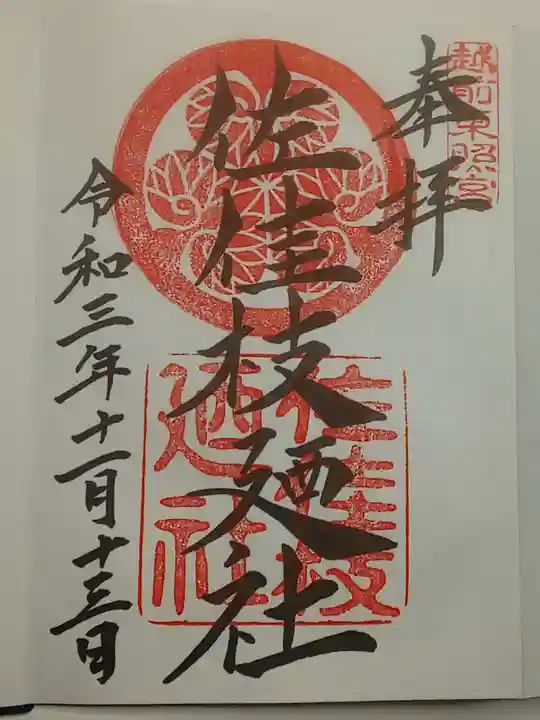 越前東照宮
奉拝
佐佳枝廼社
佐佳枝
廼社
令和三年十一月十三日